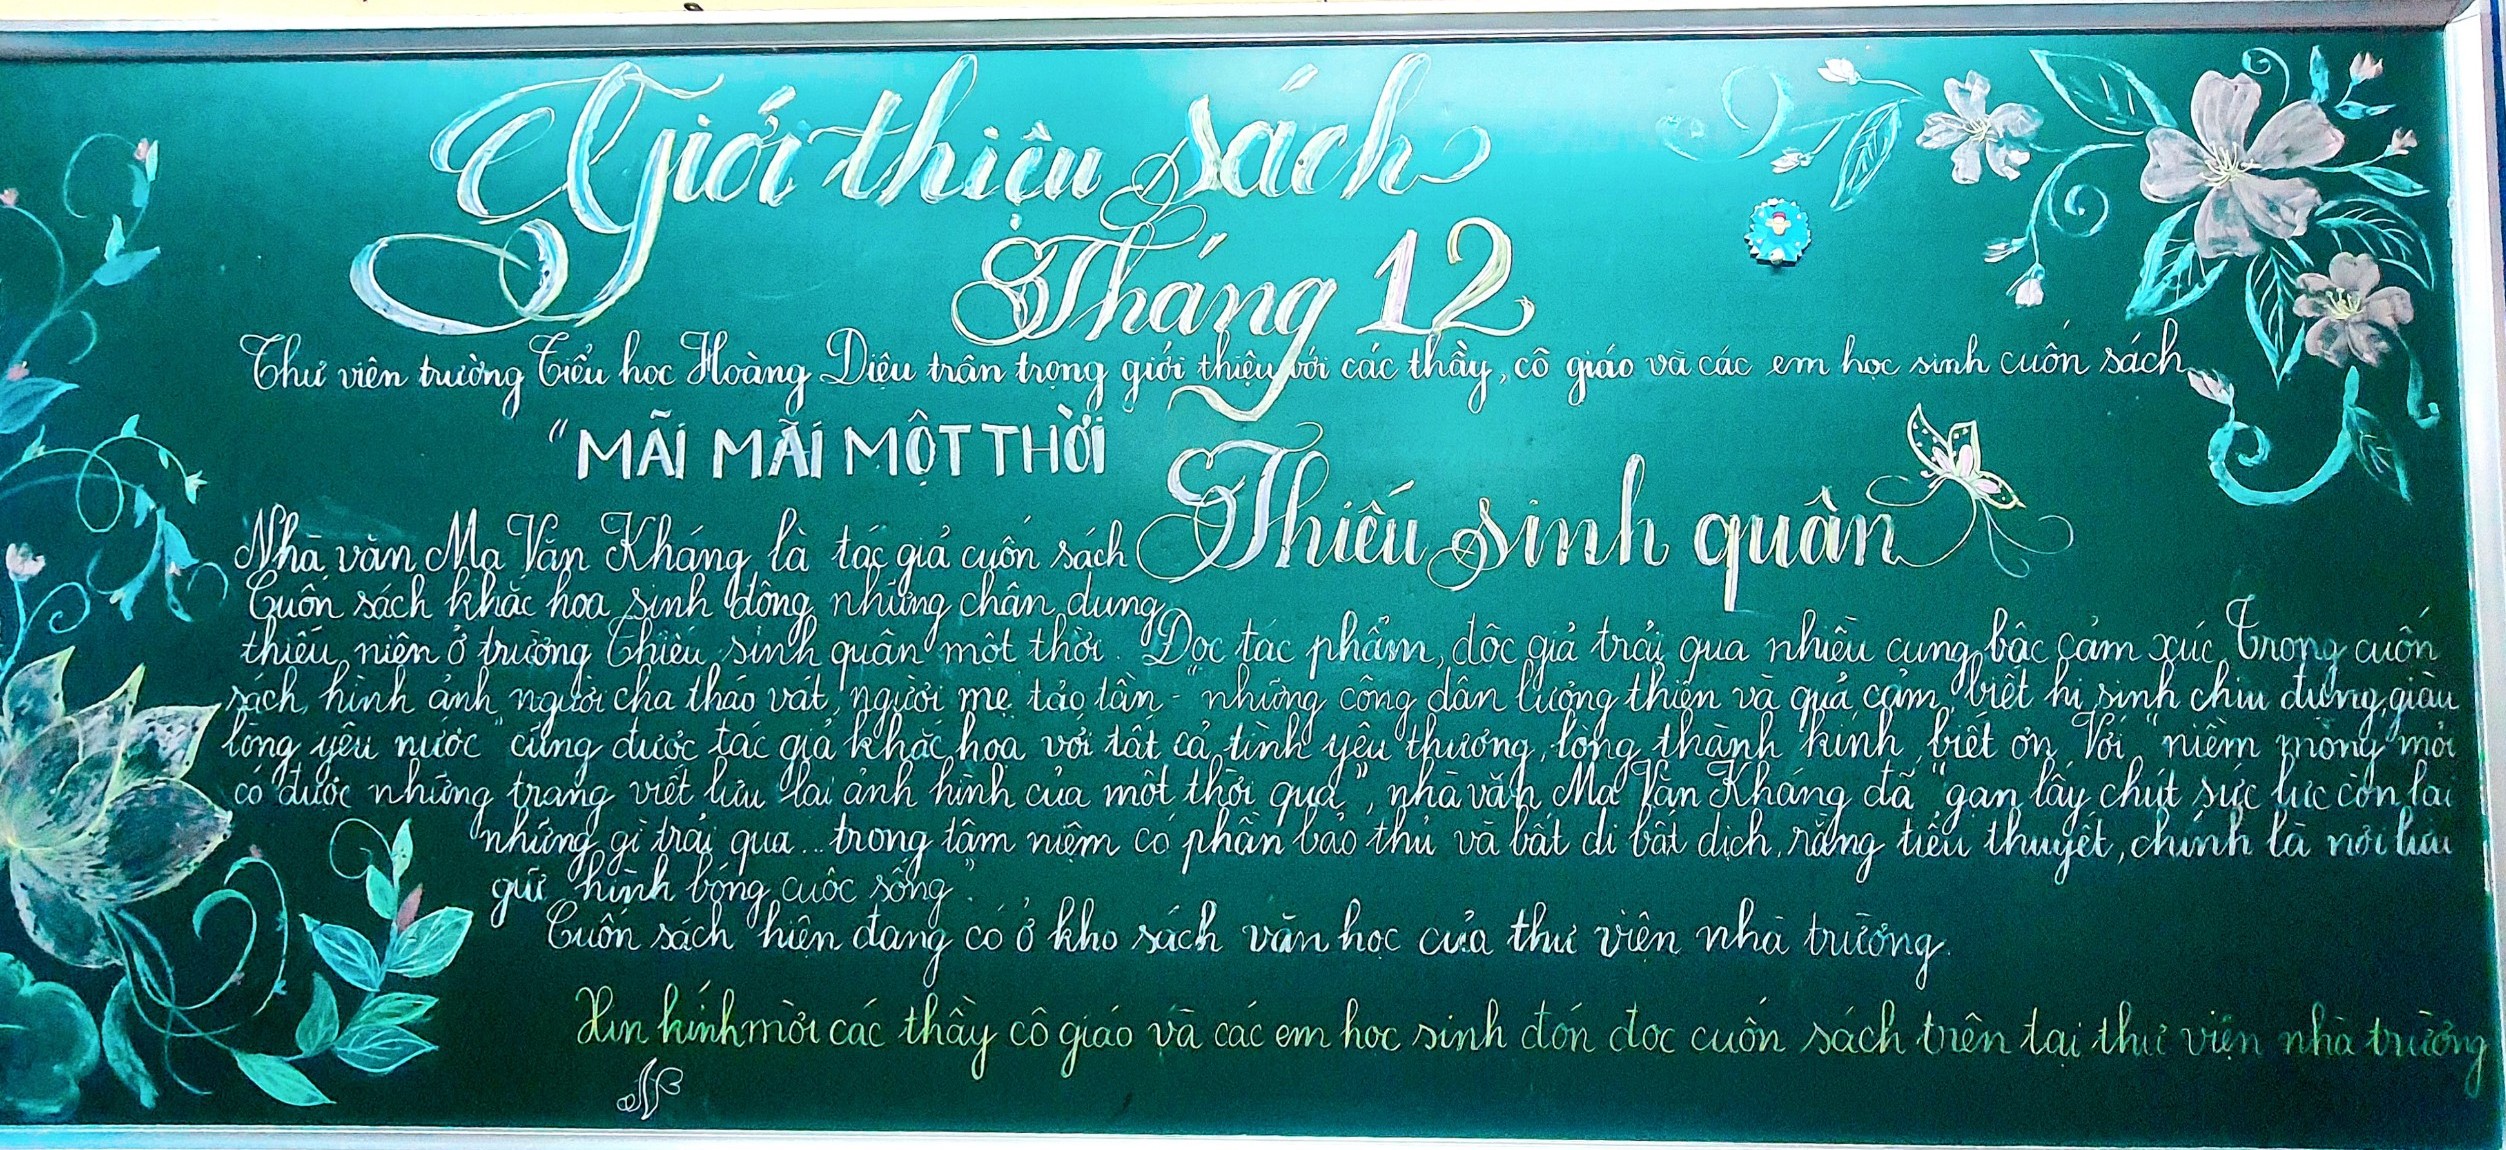 Giới thiệu sách
Tháng 12
Thư viện trường Tiểu học Hoàng Diệu trân trọng giới thiệu với các thầy, cô giáo và các em học sinh cuốn sách
"MÃI MÃI MỘT THỜI
Thiếu sinh quân
Nhà văn Ma Văn Kháng là tác giả cuốn sách
Cuốn sách khắc họa sinh động những chân dung
thiếu niên ở trường Thiếu sinh quân một thời. Đọc tác phẩm, độc giả trải qua nhiều cung bậc cảm xúc. Trong cuốn
sách, hình ảnh người cha tháo vát, người mẹ tảo tần - "những công dân lương thiện và quả cảm, biết hi sinh chịu đựng, giàu
lòng yêu nước" cũng được tác giả khắc họa với tất cả tình yêu thương, lòng thành kính, biết ơn. Với "niềm mong mỏi
có được những trang viết lưu lại ảnh hình của một thời qua", nhà văn Ma Văn Kháng đã "gạn lấy chút sức lực còn lại
những gì trải qua... trong tâm niệm có phần bảo thủ và bất di bất dịch, rằng tiểu thuyết, chính là nơi lưu
giữ hình bóng cuộc sống".
Cuốn sách hiện đang có ở kho sách văn học của thư viện nhà trường.
Xin kính mời các thầy cô giáo và các em học sinh đón đọc cuốn sách trên tại thư viện nhà trường